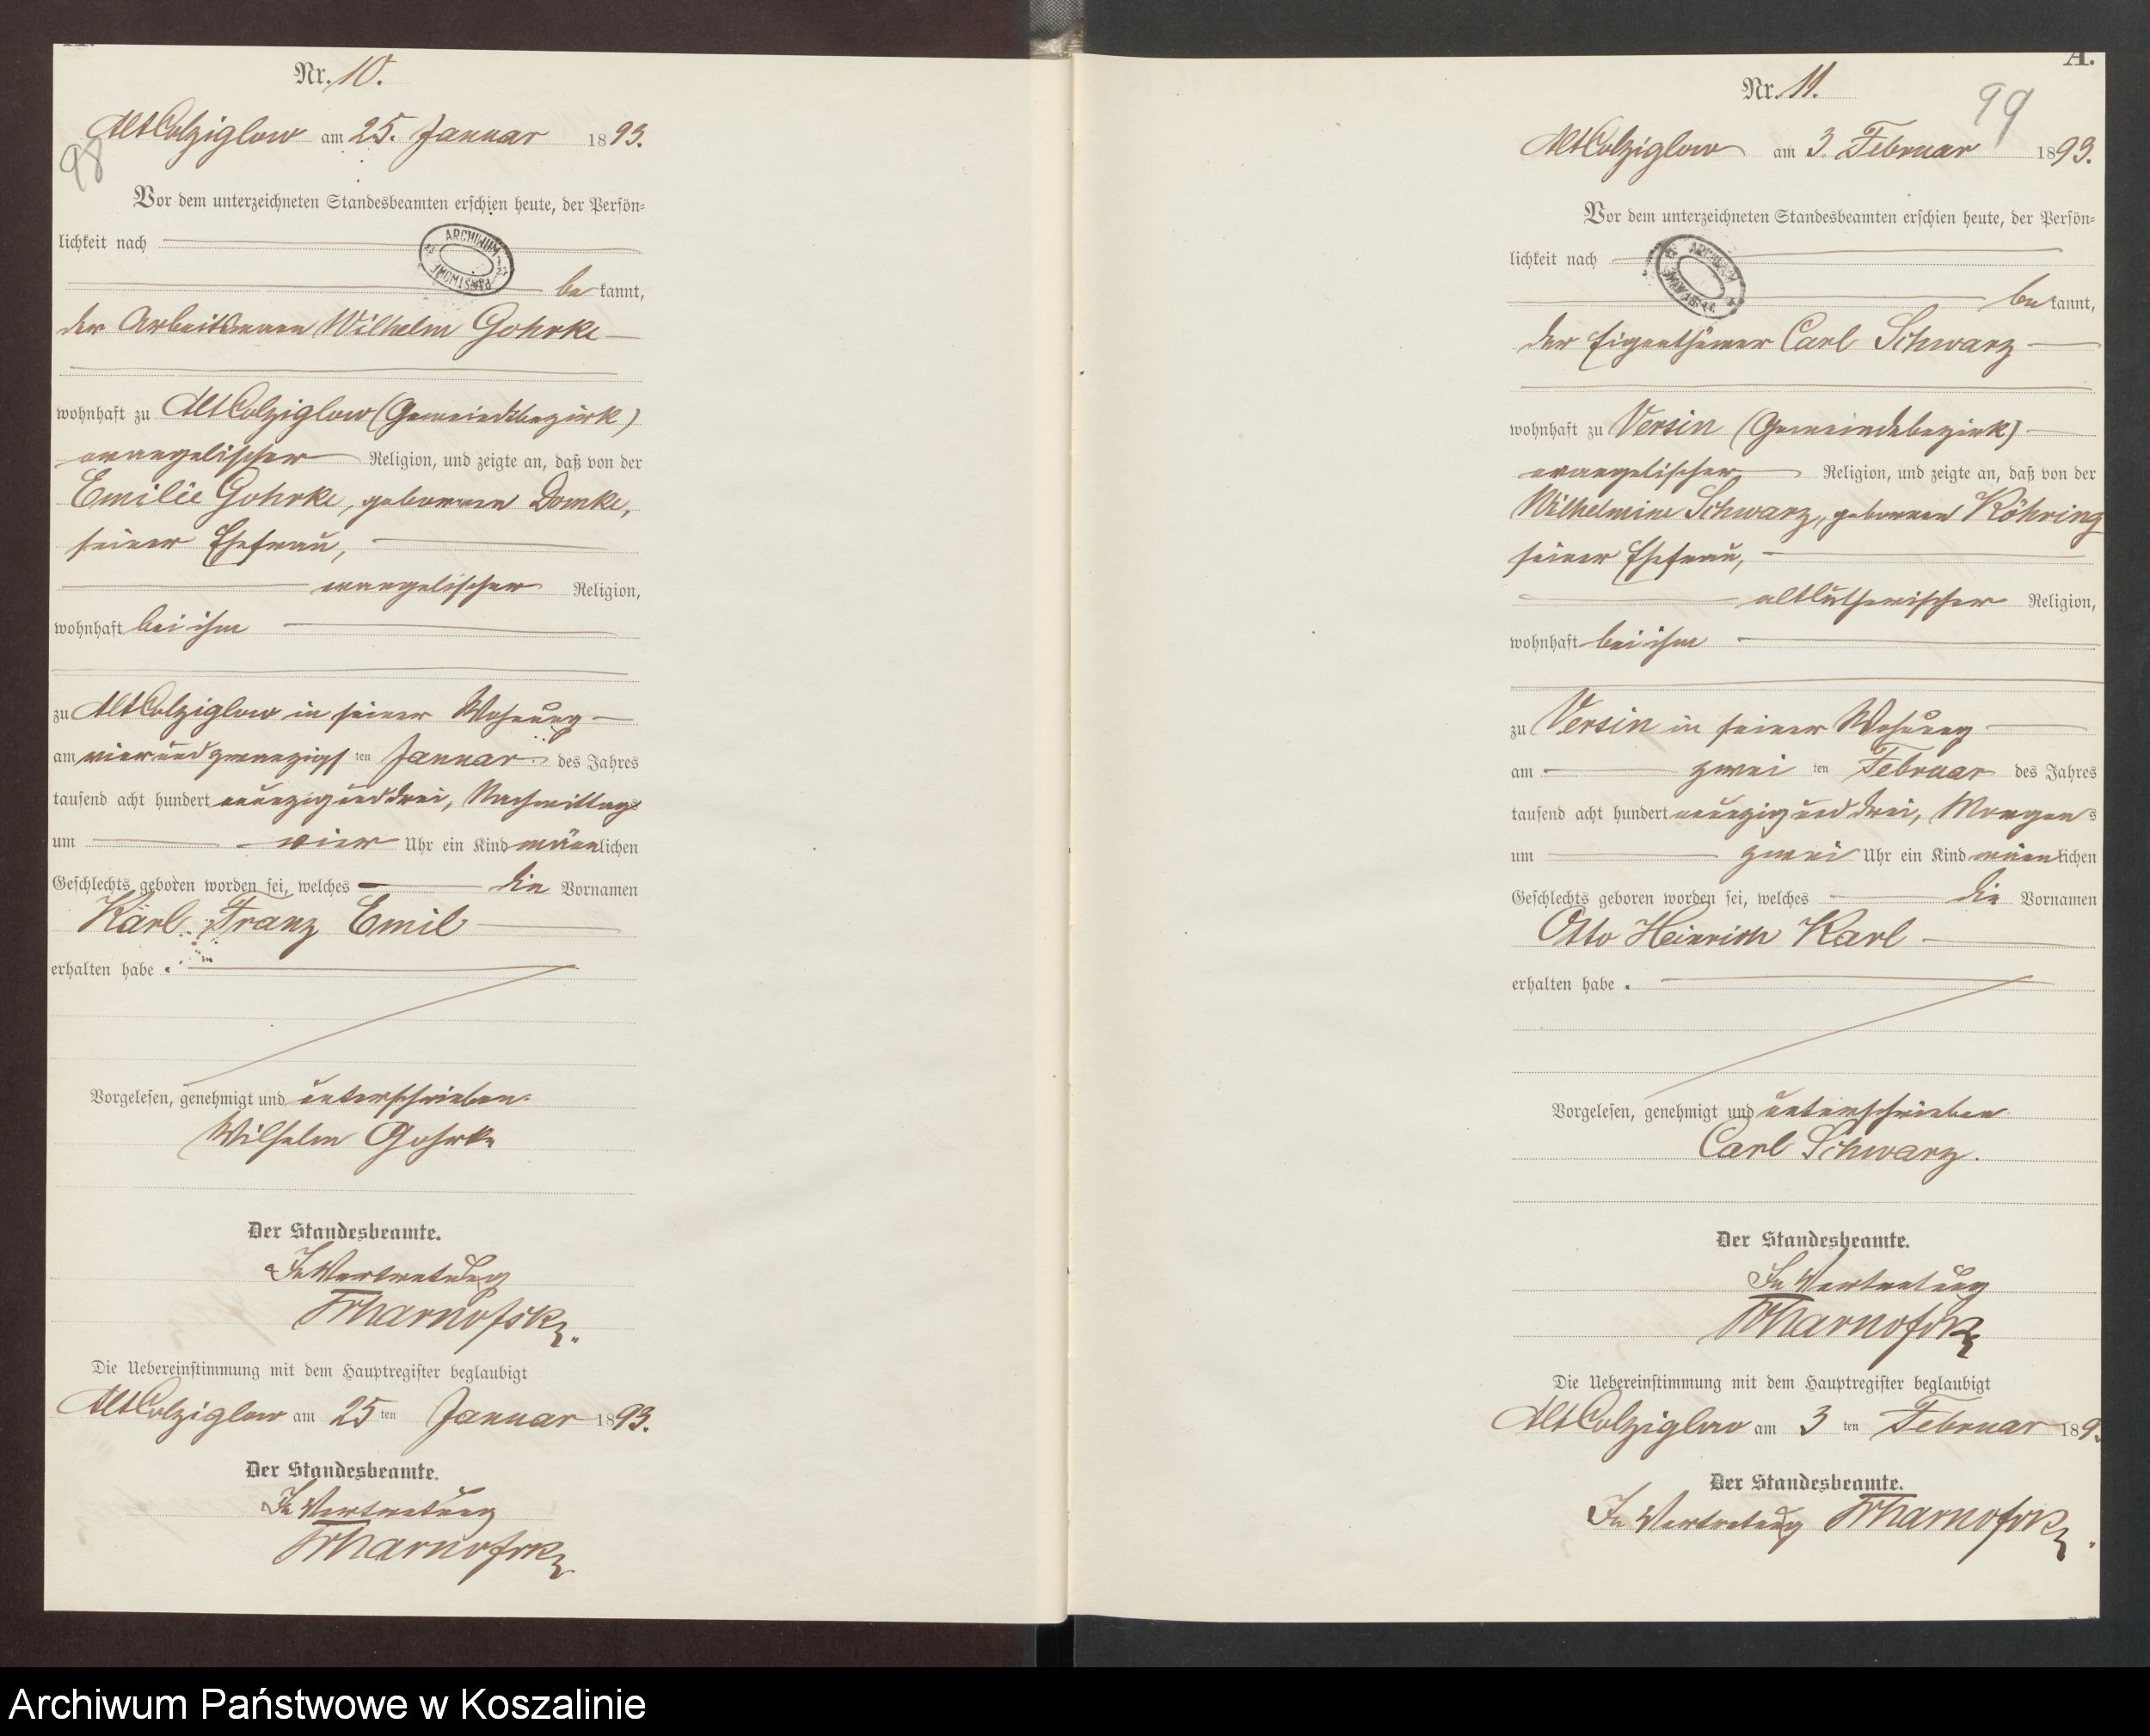 Nr. 10.
AltColziglow am 25. Januar 1893.
98
Vor dem unterzeichneten Standesbeamten erschien heute, der Persön-
lichkeit nach
ARCHIWUM PAŃSTWOWE
be kannt,
der Arbeitsmann Wilhelm Gohrke
wohnhaft zu AltColziglow (Gemeindebezirk)
evangelischer Religion, und zeigte an, daß von der
Emilie Gohrke, geborenen Domke,
seiner Ehefrau,
evangelischer Religion,
wohnhaft bei ihm
zu AltColziglow in seiner Wohnung
am vierundzwanzigs ten Januar des Jahres
tausend acht hundert neunzig und drei, Nachmittags
um vier Uhr ein Kind männlichen
Geschlechts geboren worden sei, welches die Vornamen
Karl Franz Emil
erhalten habe.
Vorgelesen, genehmigt und unterschrieben.
Wilhelm Gohrke
Der Standesbeamte.
In Vertretung
Die Uebereinstimmung mit dem Hauptregister beglaubigt
AltColziglow am 25 ten Januar 1893.
Der Standesbeamte.
In Vertretung
A.
Nr. 11.
99
AltColziglow am 3. Februar 1893.
Vor dem unterzeichneten Standesbeamten erschien heute, der Persön-
lichkeit nach
ARCHIWUM
be kannt,
der Eigenthümer Carl Schwarz
wohnhaft zu Versin (Gemeindebezirk)
evangelischer Religion, und zeigte an, daß von der
Wilhelmine Schwarz, geborenen Röhring
seiner Ehefrau,
altlutherischer Religion,
wohnhaft bei ihm
zu Versin in seiner Wohnung
am zwei ten Februar des Jahres
tausend acht hundert neunzig und drei, Morgens
um zwei Uhr ein Kind männlichen
Geschlechts geboren worden sei, welches die Vornamen
Otto Heinrich Karl
erhalten habe.
Vorgelesen, genehmigt und unterschrieben
Carl Schwarz.
Der Standesbeamte.
In Vertretung
Die Uebereinstimmung mit dem Hauptregister beglaubigt
AltColziglow am 3 ten Februar 189
Der Standesbeamte.
In Vertretung
Archiwum Państwowe w Koszalinie